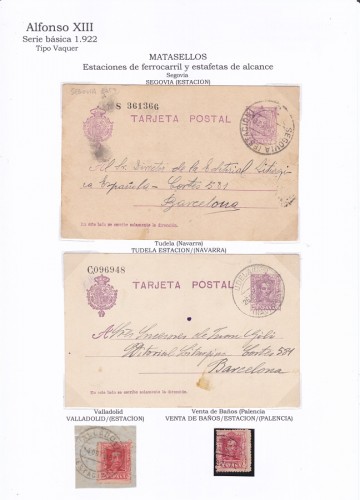 Alfonso XIII
Serie básica 1.922
Tipo Vaquer
MATASELLOS
Estaciones de ferrocarril y estafetas de alcance
Segovia
SEGOVIA (ESTACION)
S 361366
TARJETA POSTAL
SEGOVIA (ESTACION)
Española - Cortés 581
Barcelona
En este lado se escribe solamente la dirección.
Tudela (Navarra)
TUDELA ESTACION/(NAVARRA)
C,096948
TARJETA POSTAL
Cortes 581
Barcelona
En este lado se escribe solamente la dirección.
Valladolid
VALLADOLID/(ESTACION)
Venta de Baños (Palencia
VENTA DE BAÑOS/ESTACION/(PALENCIA)